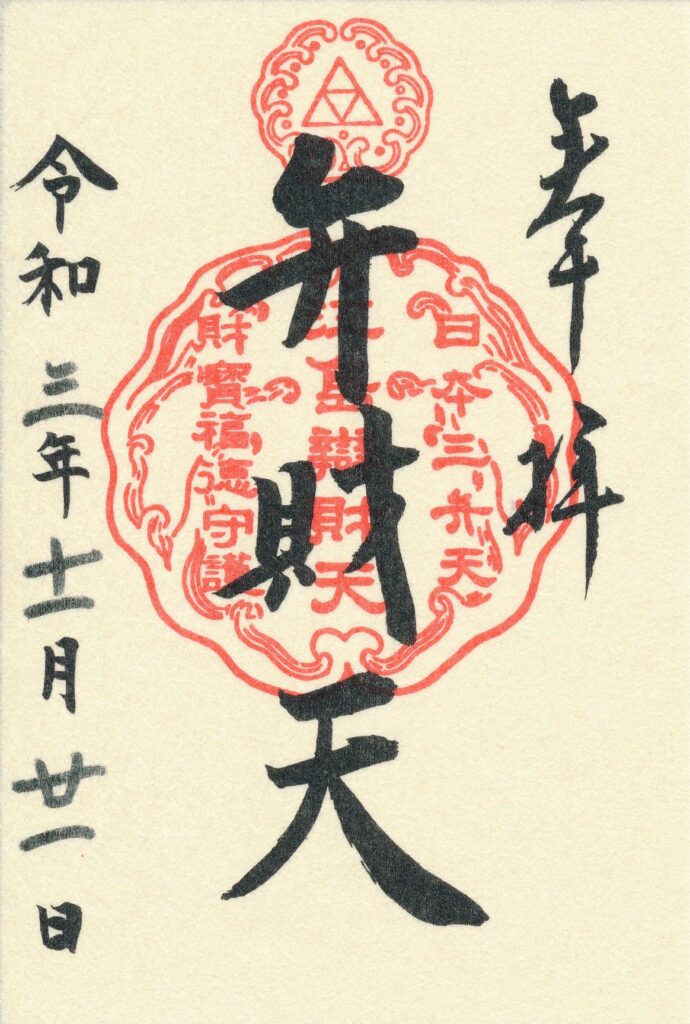 奉拝
弁財天
日本三弁天
江島辯財天
財寶福徳守護
令和三年十一月廿一日